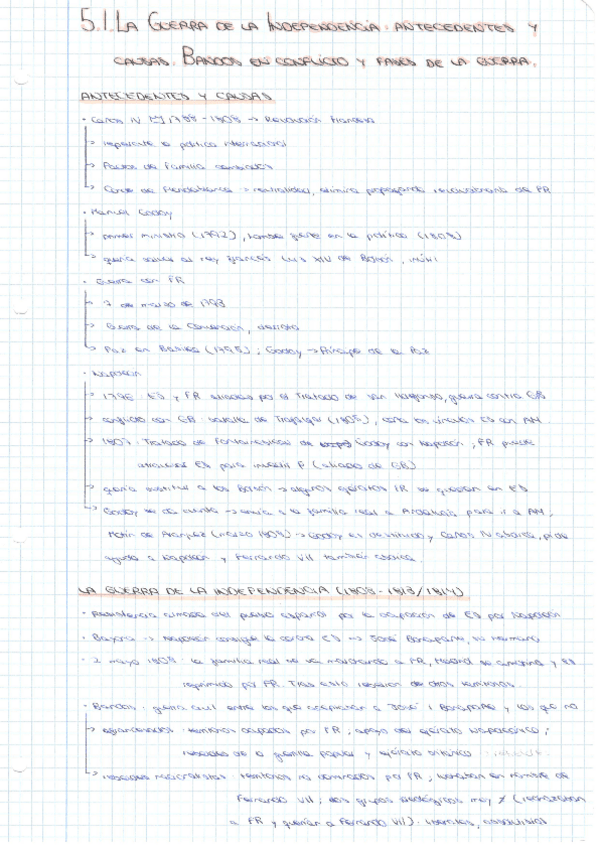 5.1. LA GUERRA DE LA INDEPENDENCIA: ANTECEDENTES Y
CAUSAS. BANDOS EN CONFLICTO Y FASES DE LA GUERRA.
ANTECEDENTES Y CAUSAS
· Carlos IV 1788-1808 -> Revolución francesa
-> importante la política internacional
-> Pactos de Familia
-> Conde de Floridablanca -> neutralidad, elimina propaganda revolucionaria de FR
· Manuel Godoy
-> primer ministro (1792), hombre fuerte en la política (1808)
-> quería salvar al rey francés Luis XVI de Borbón, inútil
· Guerra con FR
-> 7 de marzo de 1793
-> Guerra de la Convención, derrota
-> Paz en Basilea (1795); Godoy -> Príncipe de la Paz
· Napoleón
-> 1796: ES y FR aliados por el Tratado de San Ildefonso, guerra contra GB
-> conflicto con GB: batalla de Trafalgar (1805), corta los vínculos ES con AM
-> 1807: Tratado de Fontainebleau de Godoy con Napoleón; FR puede
atravesar ES para invadir P (aliado de GB)
-> quería sustituir a los Borbón -> algunos ejércitos FR se quedan en ES
-> Godoy se da cuenta -> envía a la familia real a Andalucía para ir a AM;
Motín de Aranjuez (marzo 1808) -> Godoy es destituido y Carlos IV abdica, pide
ayuda a Napoleón y Fernando VII también abdica.
LA GUERRA DE LA INDEPENDENCIA (1808-1813/1814)
· Resistencia armada del pueblo español por la ocupación de ES por Napoleón
· Bayona -> Napoleón consigue la corona ES -> José Bonaparte, su hermano
· 2 mayo 1808: la familia real se va marchando a FR, Madrid se amotina y es
reprimido por FR. Tras esto rebelión de otros territorios
· Bandos: guerra civil entre los que aceptaban a José I Bonaparte y los que no
-> afrancesados: territorios ocupados por FR; apoyo del ejército napoleónico;
rebeldes de la guerrilla popular y ejército británico
-> rebeldes nacionalistas: territorios no dominados por FR; luchaban en nombre de
Fernando VII; dos grupos ideológicos muy ≠ (rechazaban
a FR y querían a Fernando VII): liberales, absolutistas